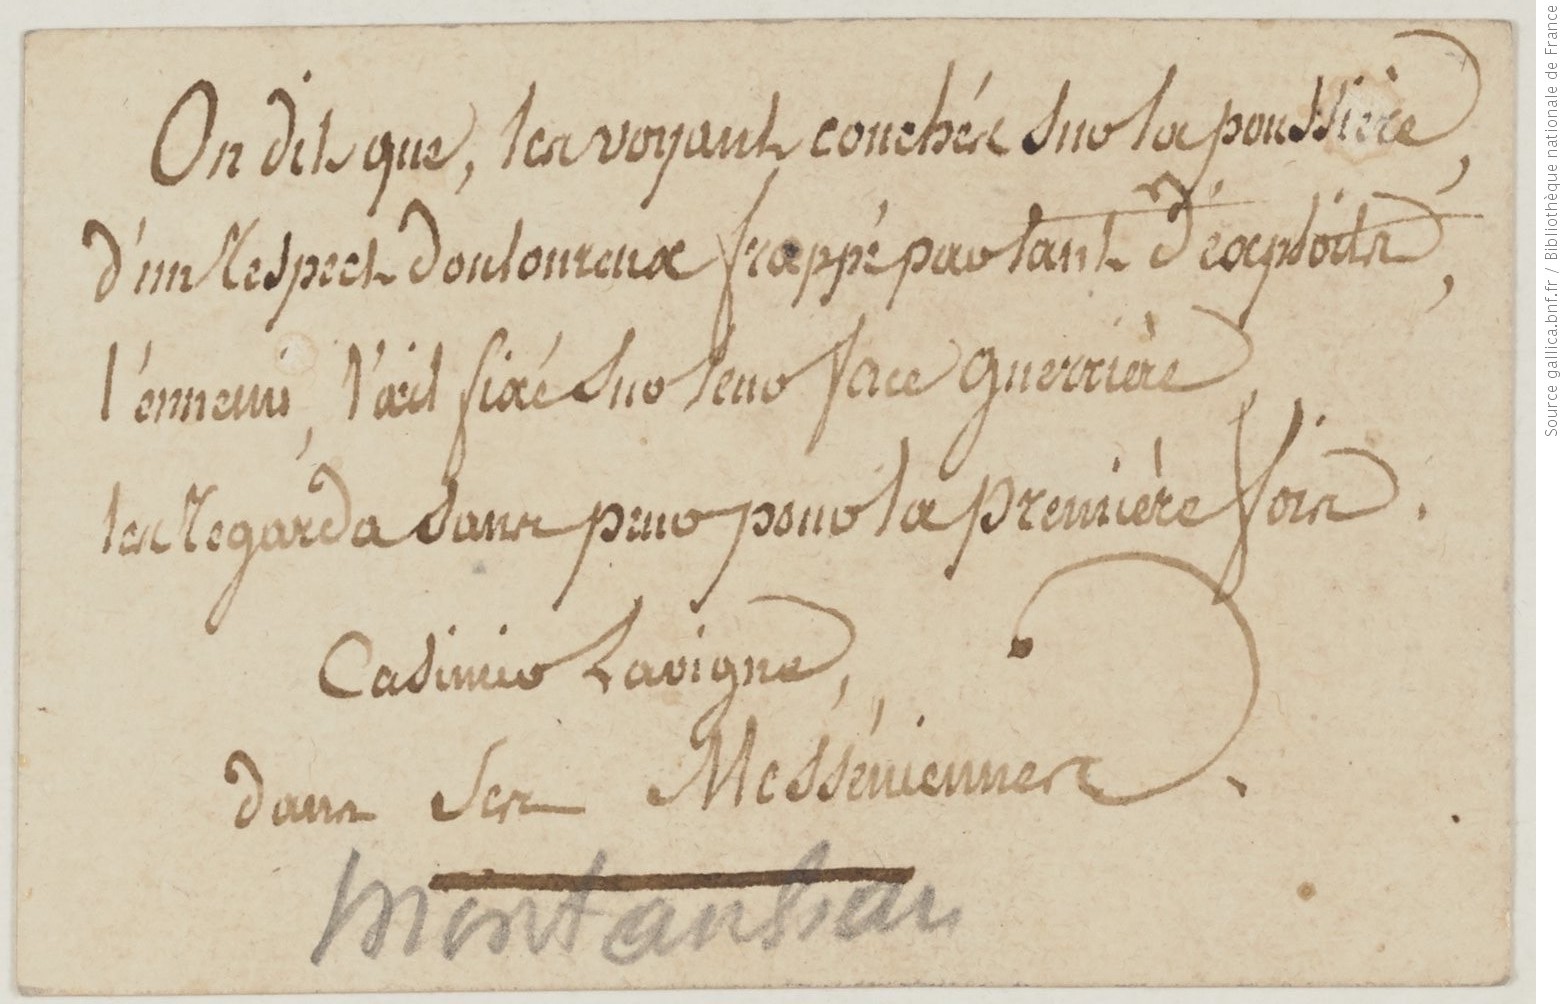 On dit que, les voyant couchés sur la poussière,
d'un respect douloureux frappé par tant d'exploits,
l'ennemi, l'œil fixé sur leur face guerrière,
les regarda sans peur pour la première fois.
Casimir Lavigne,
dans ses Messéniennes.
Montauban
Source gallica.bnf.fr / Bibliothèque nationale de France